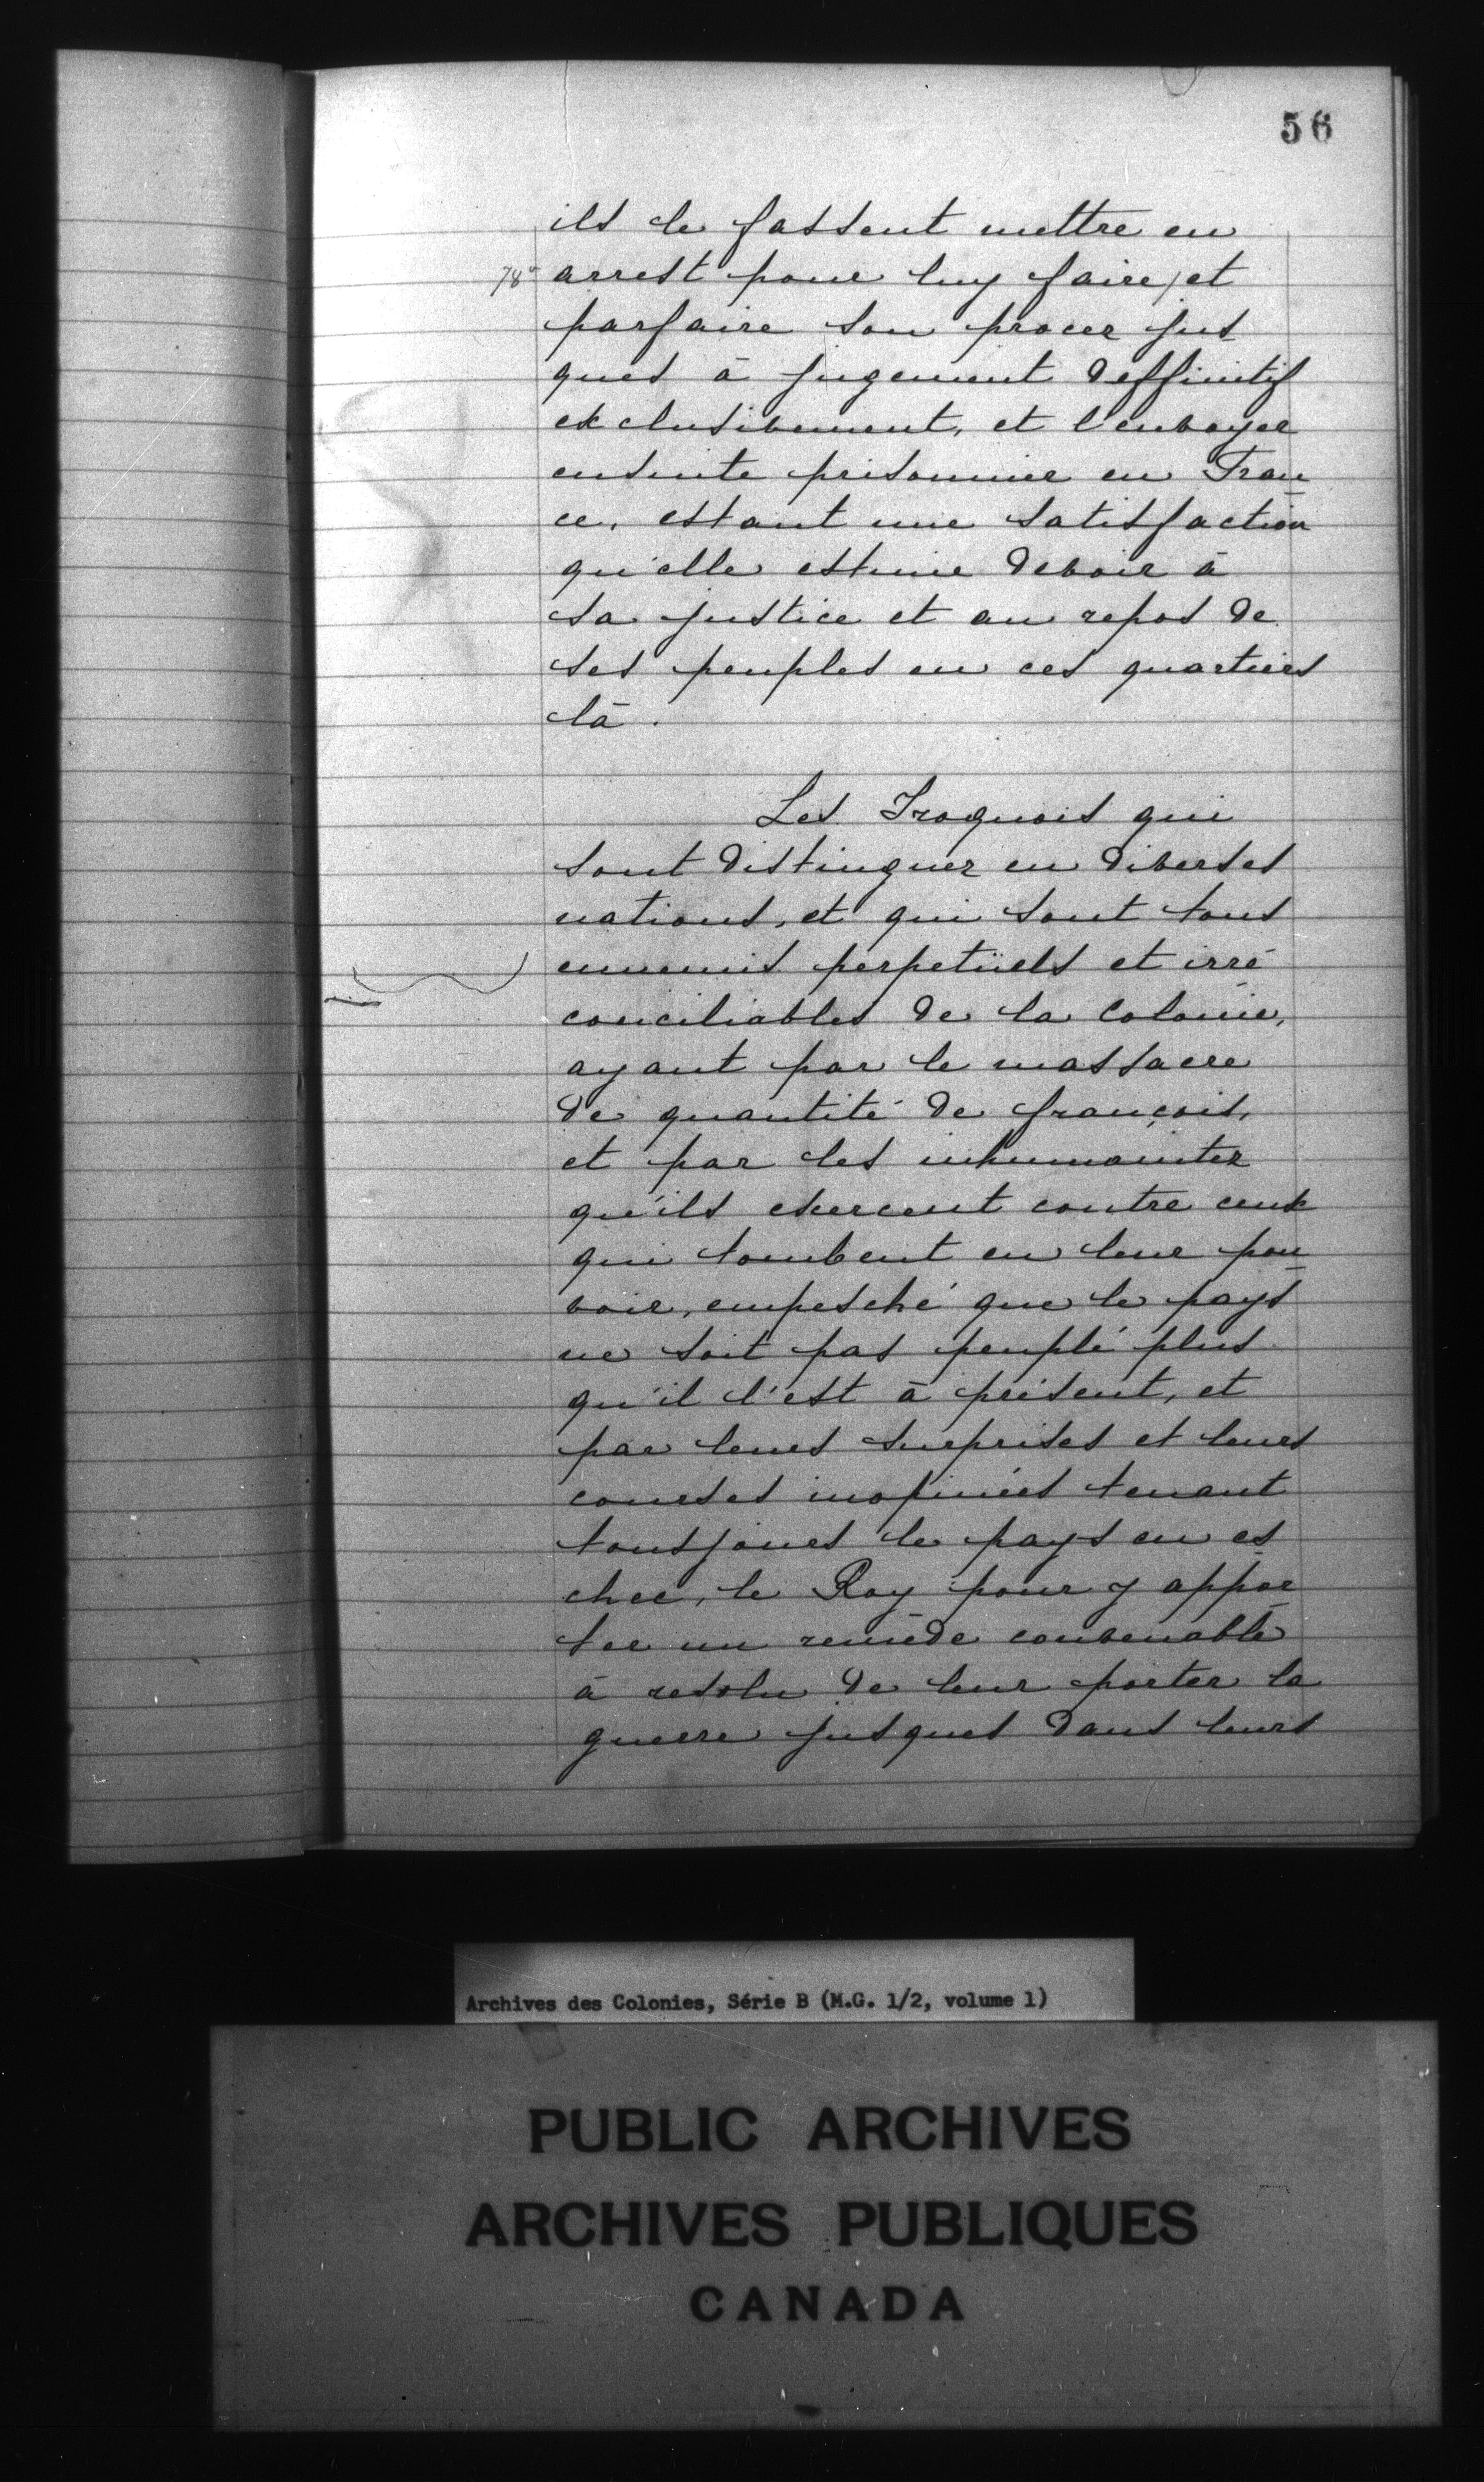 56
ils le fassent mettre en
78v arrest pour luy faire, et
parfaire son procez jus
ques à jugement deffinitif
exclusivement, et l'envoyer
ensuite prisonnier en Fran
ce, estant une satisfaction
qu'elle estime devoir à
sa justice et au repos de
ses peuples en ces quartiers
là.
Les Iroquois qui
sont distinguez en diverses
nations, et qui sont tous
ennemis perpetüels et irré
conciliables de la Colonie,
ayant par le massacre
de quantité de françois,
et par les inhumanitez
qu'ils exercent contre ceux
qui tombent en leur pou
voir, empesché que le pays
ne soit pas peuplé plus
qu'il l'est à présent, et
par leurs surprises et leurs
courses inopinées tenant
tousjours le pays en es
chec, le Roy pour y appor
ter un remède convenable
à resolu de leur porter la
guerre jusques dans leurs
Archives des Colonies, Série B (M.G. 1/2, volume 1)
PUBLIC ARCHIVES
ARCHIVES PUBLIQUES
CANADA